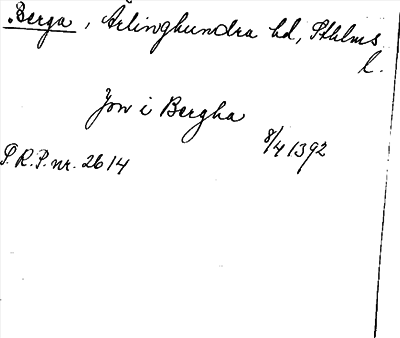 Berga, Ärlinghundra hd, Sthlms
l.
Jon i Bergha
8/4 1392
S.R.P. nr. 2614